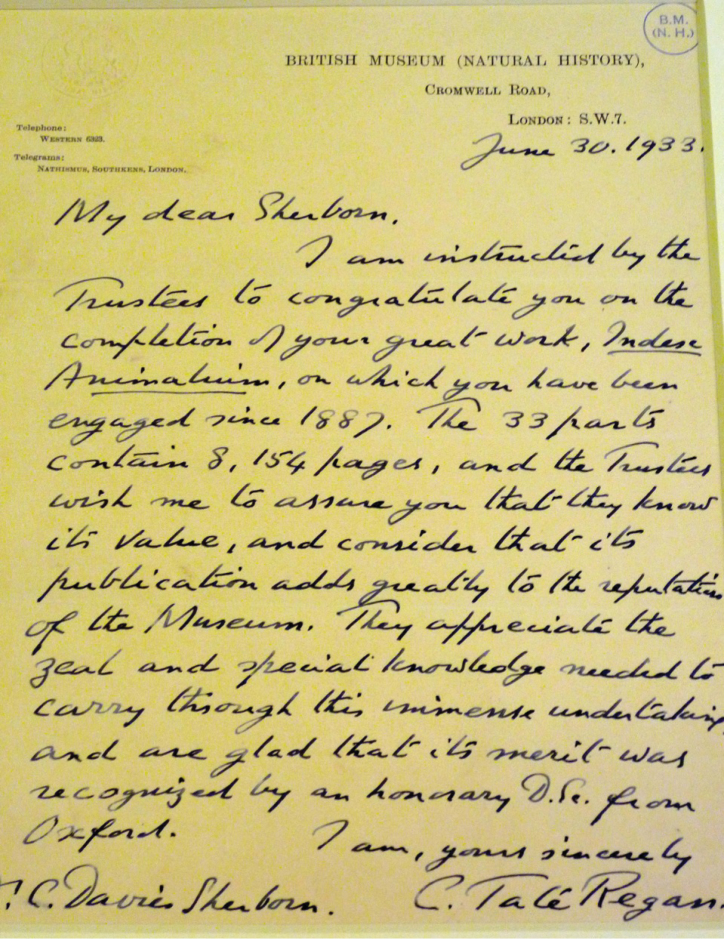 B.M.
(N.H.)
BRITISH MUSEUM (NATURAL HISTORY),
CROMWELL ROAD,
LONDON: S.W.7.
Telephone:
WESTERN 6323.
Telegrams:
NATHISMUS, SOUTHKENS, LONDON.
June 30. 1933.
My dear Sherborn,
I am instructed by the
Trustees to congratulate you on the
completion of your great work, Index
Animalium, on which you have been
engaged since 1887. The 33 parts
contain 8,154 pages, and the Trustees
wish me to assure you that they know
its value, and consider that its
publication adds greatly to the reputation
of the Museum. They appreciate the
zeal and special knowledge needed to
carry through this immense undertaking,
and are glad that its merit was
recognized by an honorary D.Sc. from
Oxford.
I am, yours sincerely
C. Davies Sherborn.
C. Tate Regan.